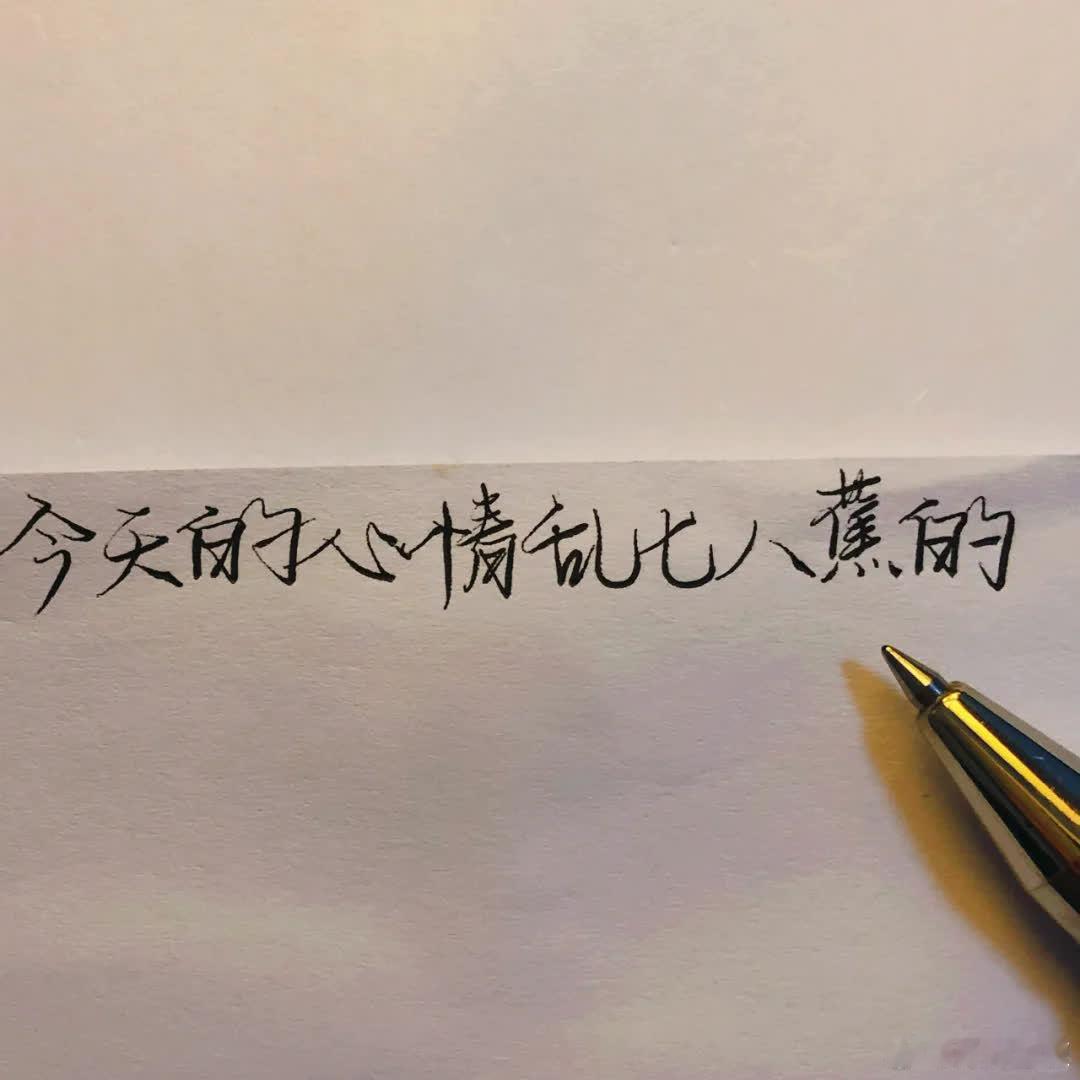 今天的心情乱七八蕉的